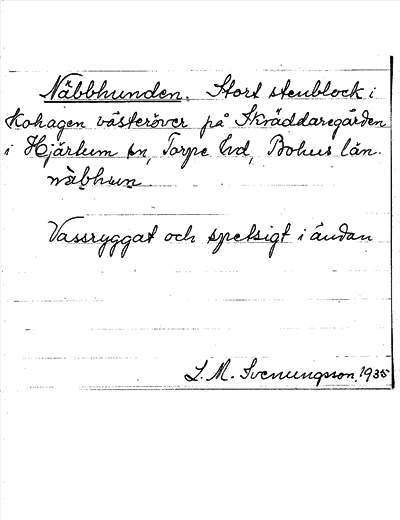 Näbbhunden. Stort stenblock i
Kohagen västeröver på Skräddaregården
i Hjärtum sn, Torpe hd, Bohus län.
nàb̥hun̥
Vassryggat och spetsigt i ändan
L. M. Svenungsson, 1935